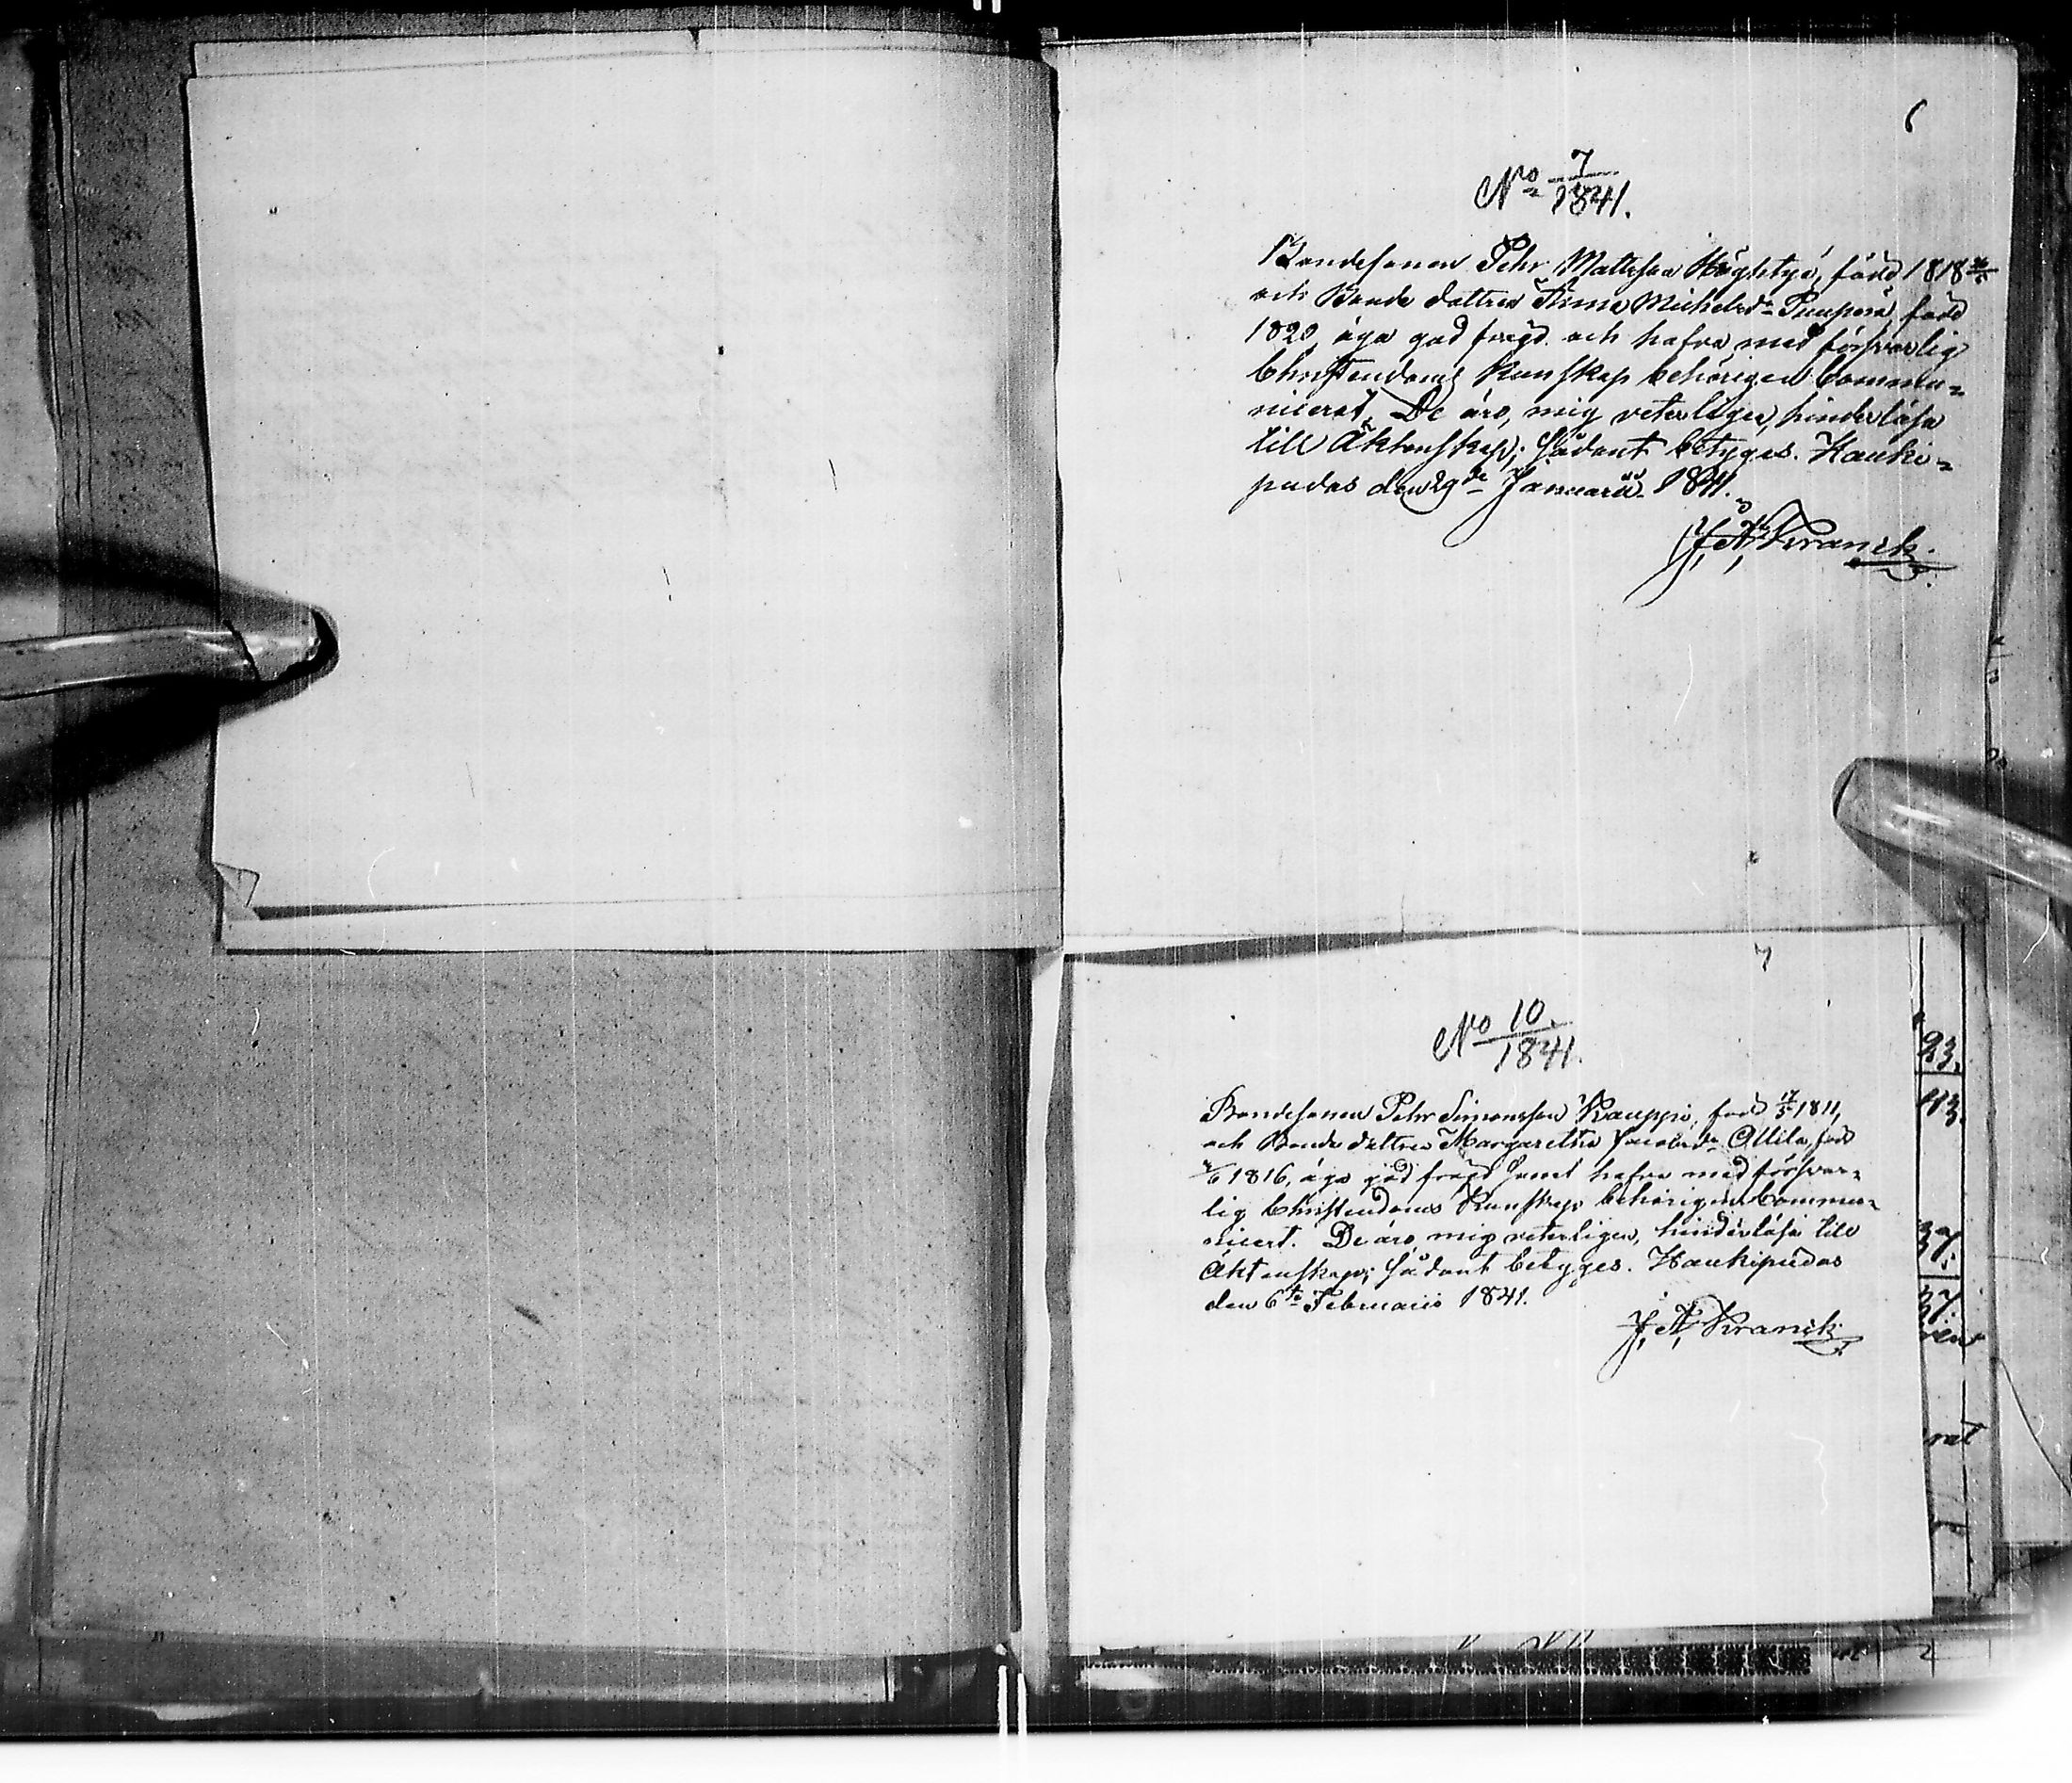 6
No 7/1841.
Bondesonen Pehr Mattsson Höyhtyä, född 1818
och Bonde dottren Anna Michelsdr Puuperä född
1820, äga god frägd och hafva med försvarlig
Christendoms Kunskap behörigen Commu=
nicerat. De äro, mig veterligen, hinderlösa
till Äktenskap; Sådant betyges. Hauki=
pudas den 29de Januarii 1841.
J. A. Kranck.
7
No 10./1841.
Bondesonen Pehr Simonsson Kauppi, född 17/5 1811,
och Bonde dottren Margaretha Jacobsdr Ollila, född
1816, äga god frägd samt hafva med försvar=
lig Christendoms Kunskap behörigen Commu=
nicert. De äro mig veterligen, hinderlösa till
Äktenskap; Sådant betyges. Haukipudas
den 6te Februarii 1841.
J. A. Kranck
23.
113.
37.
37.
rat
2